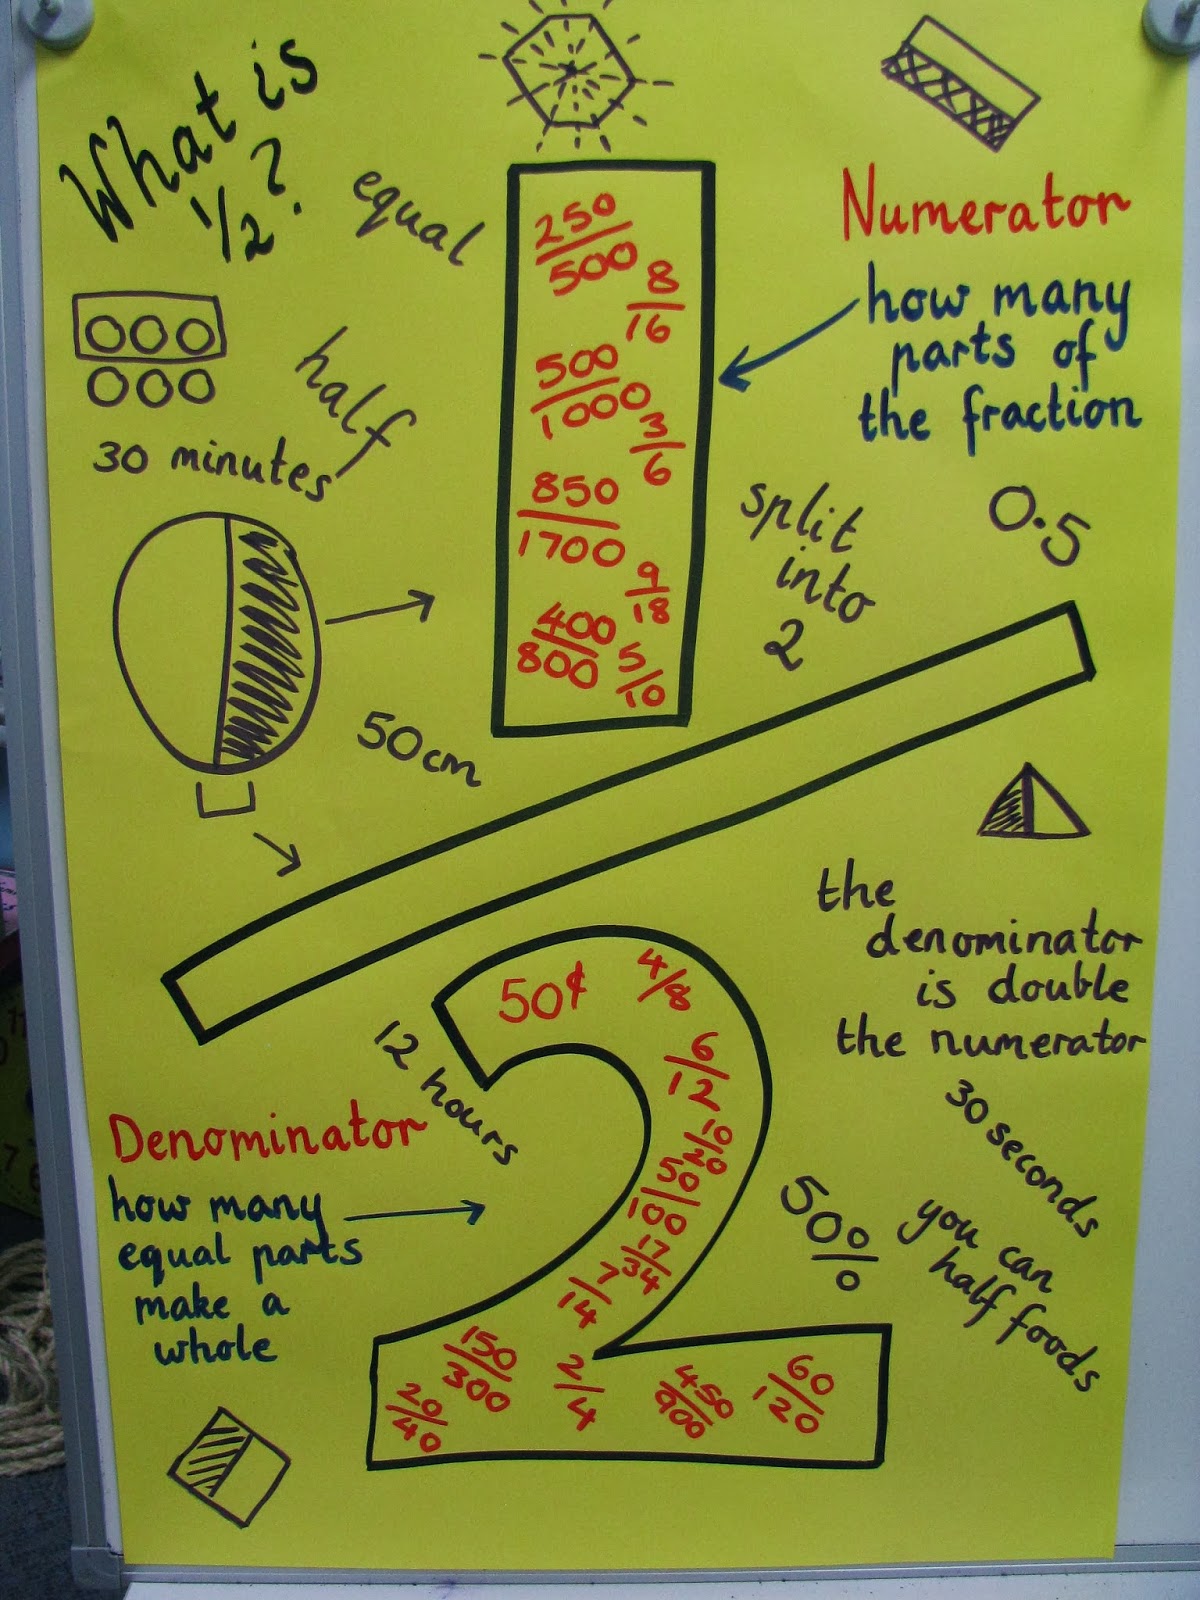 What is
1/2?
equal
half
30 minutes
50cm
250/500
8/16
500/1000
3/6
850/1700
9/18
400/800
5/10
Numerator
how many
parts of
the fraction
split
into
2
0.5
the
denominator
is double
the numerator
30 seconds
50%
you can
half foods
12 hours
Denominator
how many
equal parts
make a
whole
50¢
4/8
6/12
10/20
50/100
17/34
7/14
150/300
20/40
2/4
450/900
60/120